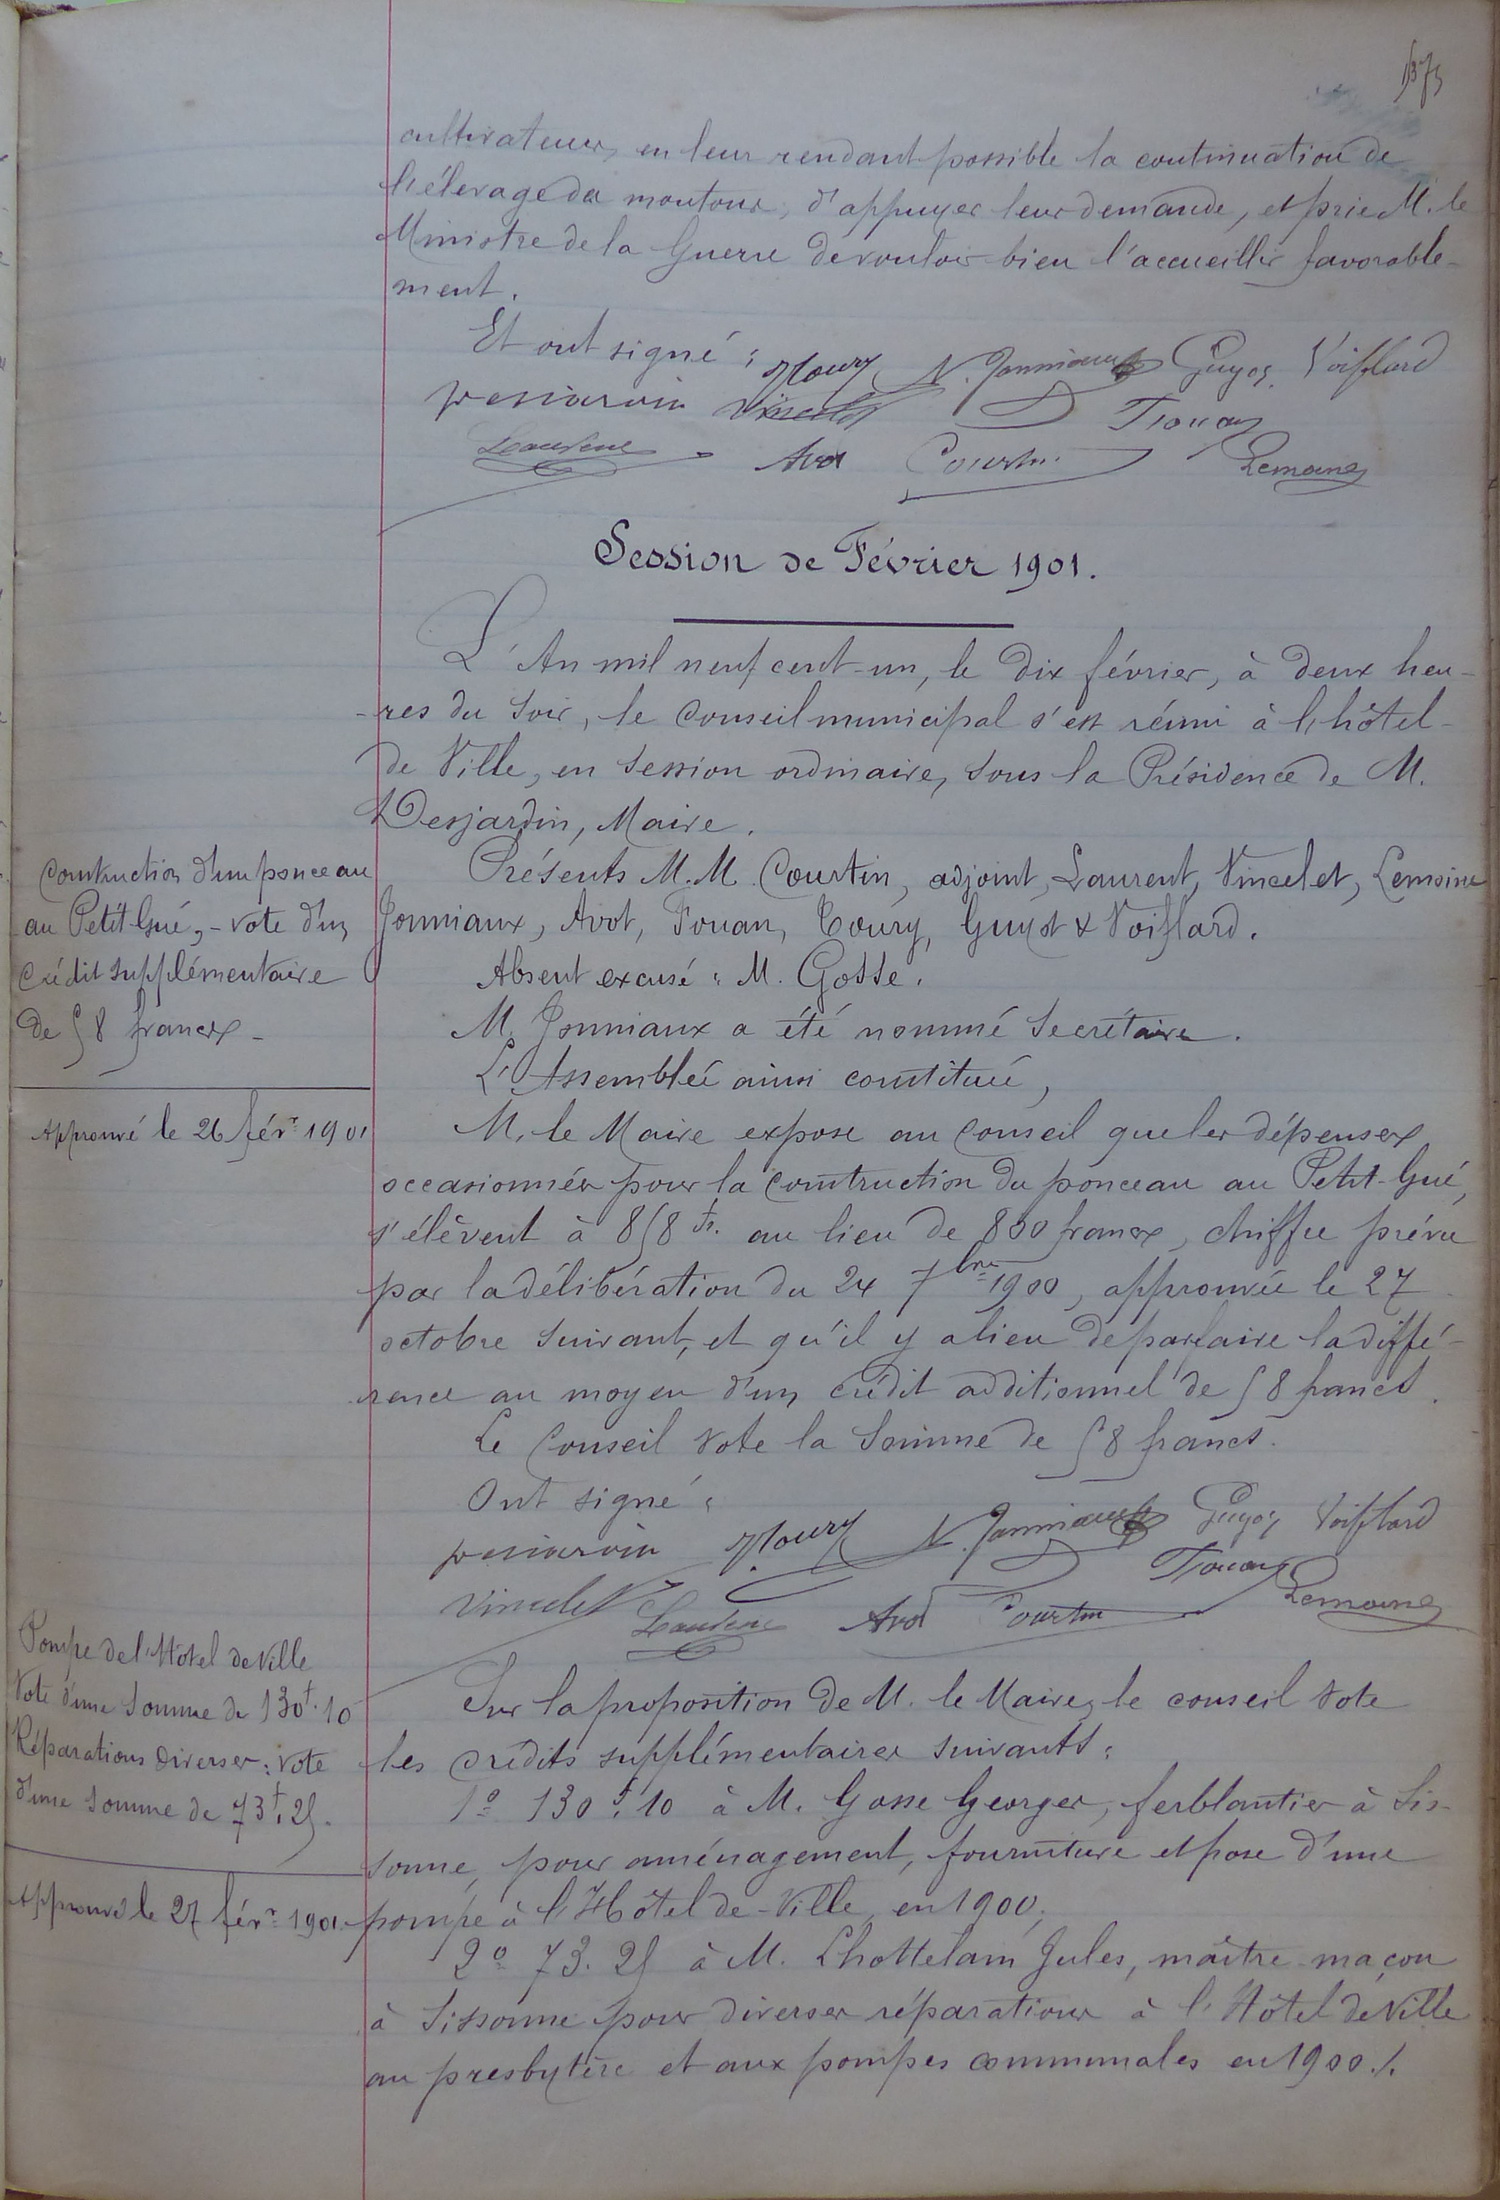 cultivateurs, en leur rendant possible la continuation de
l'élevage des moutons, d'appuyer leur demande, et prie M. le
Ministre de la Guerre de vouloir bien l'accueillir favorable-
ment.
Et ont signé :
Toury N. Jonniaux Guyot Voiflard
Desjardin Vincelet Fouan
Laurent Avot Courtin Lemoine
Session de Février 1901.
L'An mil neuf cent-un, le dix février, à deux heu-
-res du soir, le Conseil municipal s'est réuni à l'hôtel-
de Ville, en session ordinaire, sous la Présidence de M.
Desjardin, Maire.
Construction d'un ponceau
au Petit Gué, - vote d'un
Crédit supplémentaire
de 58 francs -
Approuvé le 26 févr 1901
Présents M.M. Courtin, adjoint, Laurent, Vincelet, Lemoine
Jonniaux, Avot, Fouan, Toury, Guyot & Voiflard.
Absent excusé : M. Gosse.
M. Jonniaux a été nommé Secrétaire.
L'Assemblée ainsi constituée,
M. le Maire expose au Conseil que les dépenses
occasionnées pour la construction du ponceau au Petit-Gué,
s'élèvent à 858 fr. au lieu de 800 francs, chiffre prévu
par la délibération du 24 7bre 1900, approuvée le 27
octobre suivant, et qu'il y a lieu de parfaire la diffé-
rence au moyen d'un crédit additionnel de 58 francs.
Le Conseil vote la somme de 58 francs.
Ont signé :
Desjardin Toury N. Jonniaux Guyot Voiflard
Fouan
Vincelet Laurent Avot Courtin Lemoine
Pompe de l'Hôtel de Ville
Vote d'une somme de 130f.10
Réparations diverses : vote
d'une somme de 73f.25.
Approuvé le 27 févr 1901.
Sur la proposition de M. le Maire, le conseil vote
les crédits supplémentaires suivants :
1º 130f.10 à M. Gosse Georges, ferblantier à Sis-
sonne, pour aménagement, fourniture et pose d'une
pompe à l'Hôtel de-Ville, en 1900,
2º 73.25 à M. Lhottelain Jules, maître-maçon
à Sissonne pour diverses réparations à l'Hôtel de Ville
au presbytère et aux pompes communales en 1900./.